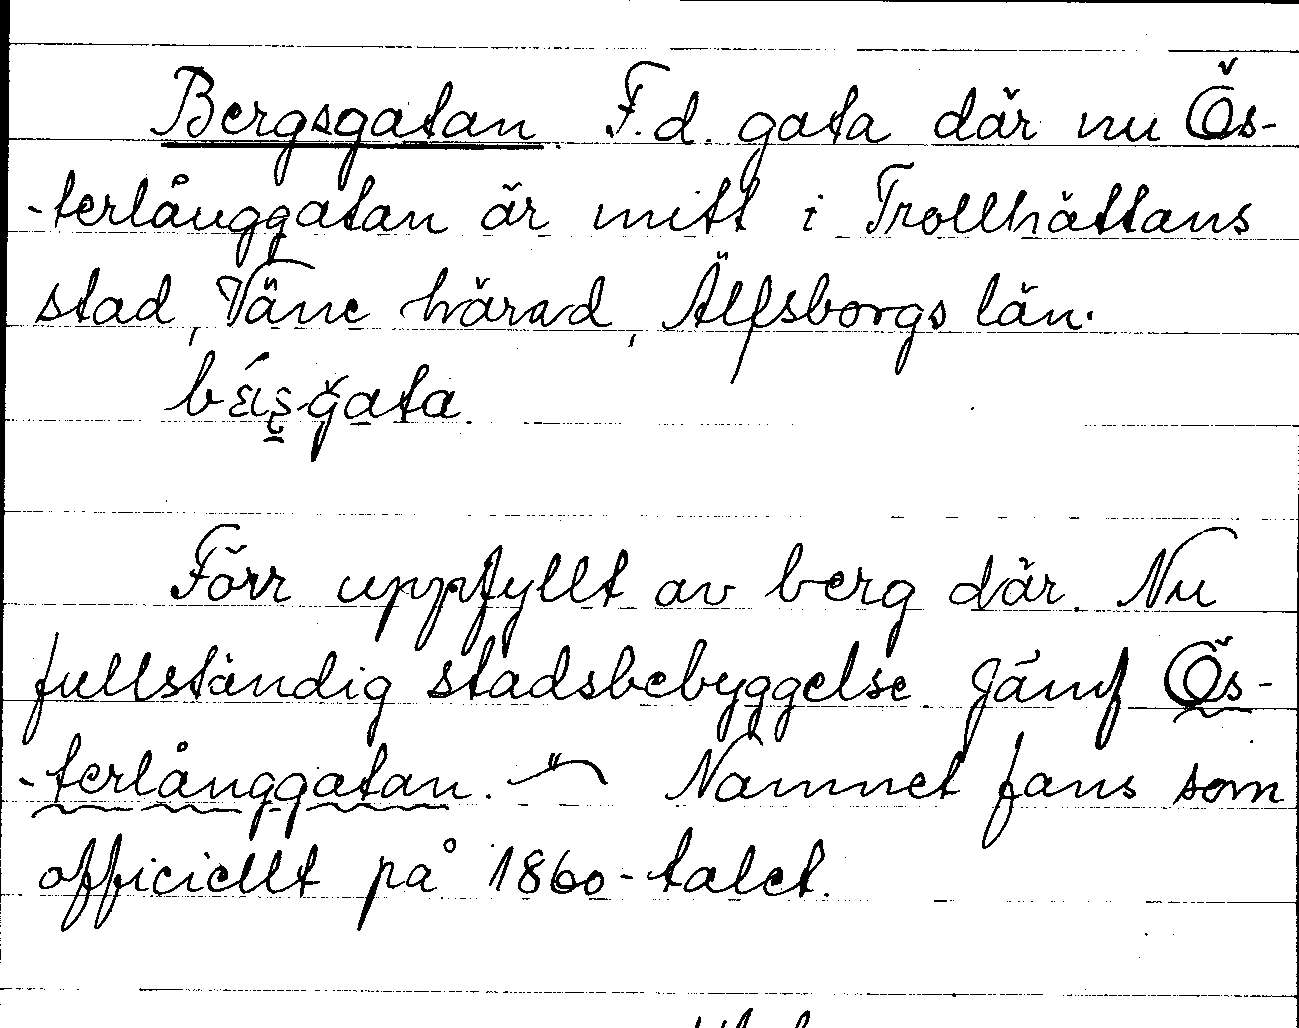 Bergsgatan. F.d. gata där nu Ös-
-terlånggatan är mitt i Trollhättans
stad, Väne härad, Älfsborgs län.
Förr uppfyllt av berg där. Nu
fullständig stadsbebyggelse. Jämf Ös-
-terlånggatan. — Namnet fans som
officiellt på 1860-talet.